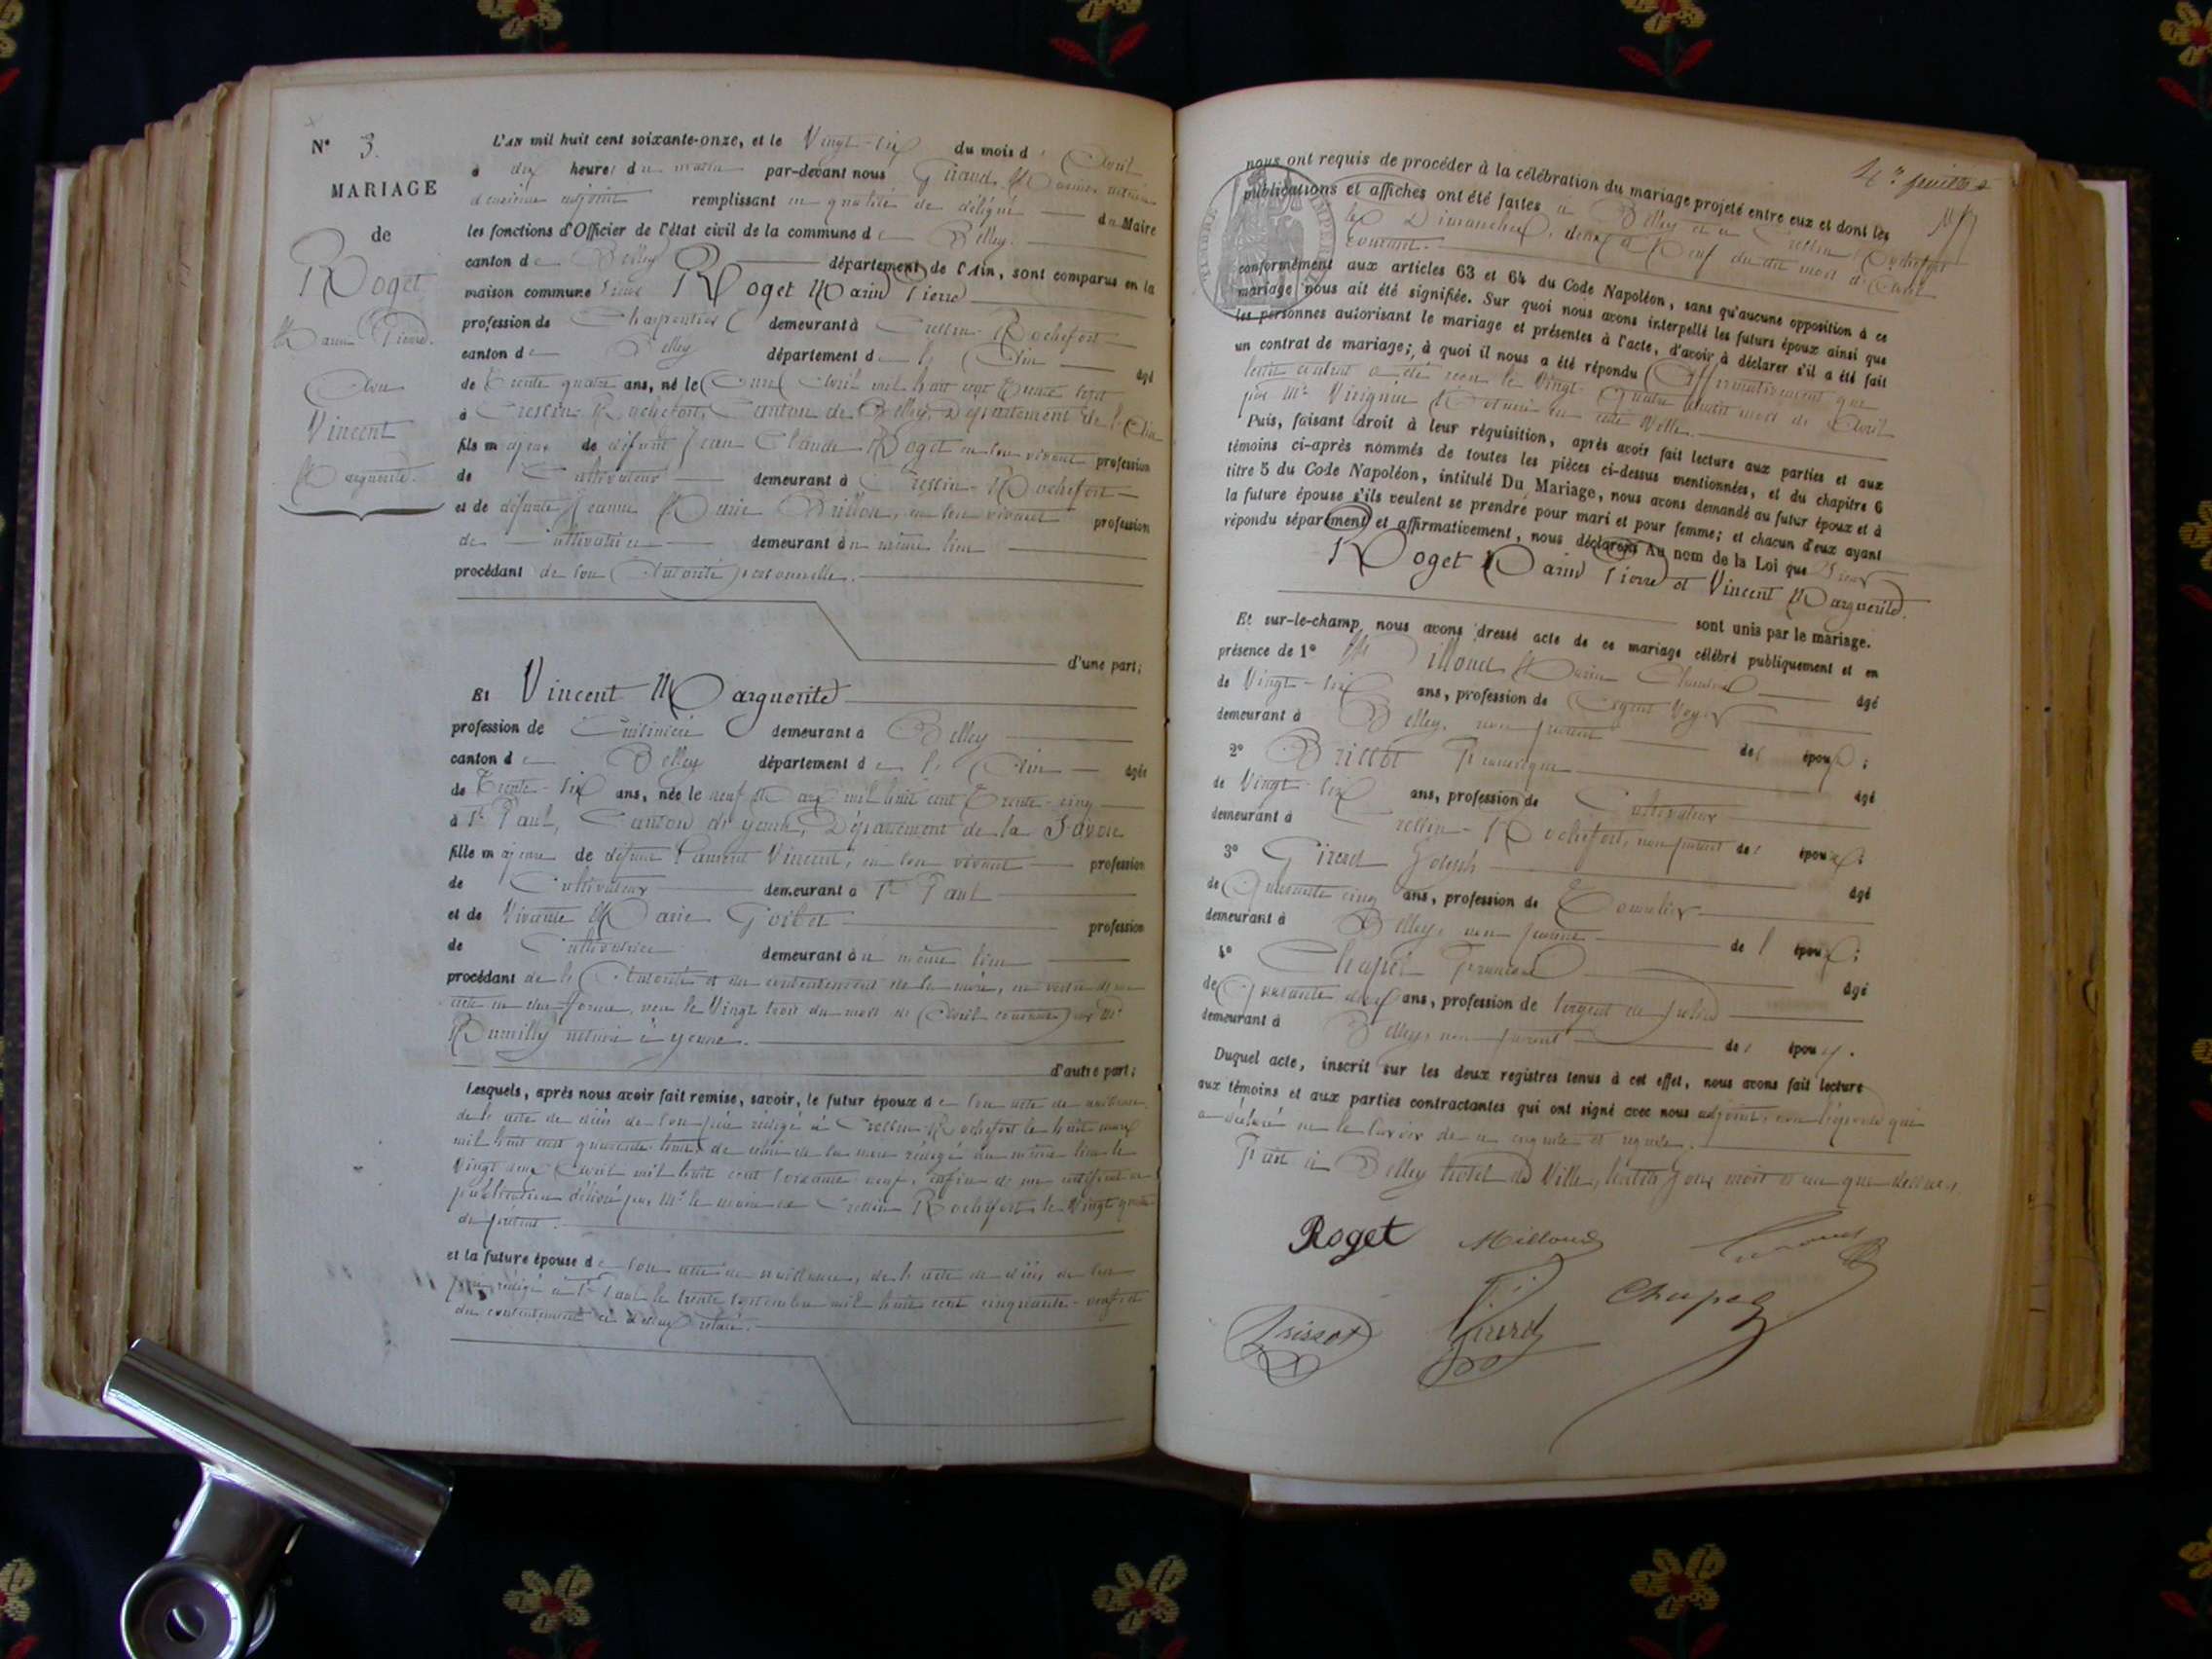 N° 3.
MARIAGE
de
Roget
Marin Pierre.
Avec
Vincent
Marguerite.
L'AN mil huit cent soixante-onze, et le Vingt-six du mois d'Avril
à dix heures du matin par-devant nous Giraud
deuxième adjoint remplissant en qualité de délégué du Maire
les fonctions d'Officier de l'état civil de la commune de Belley.
canton de Belley département de l'Ain, sont comparus en la
maison commune Sieur Roget Marin Pierre
profession de Charpentier demeurant à Cressin-Rochefort
canton de Belley département de l'Ain âgé
de Trente quatre ans, né le Onze Avril mil huit cent Trente sept
à Cressin-Rochefort, Canton de Belley, Département de l'Ain
fils majeur de défunt Jean Claude Roget en son vivant profession
de Cultivateur demeurant à Cressin-Rochefort
et de défunte Jeanne Marie Brillon, en son vivant profession
de cultivatrice demeurant au même lieu
procédant de son Autorité personnelle.
d'une part;
Et Vincent Marguerite
profession de Cuisinière demeurant à Belley
canton de Belley département de l'Ain âgée
de Trente-Six ans, née le neuf Mars mil huit cent Trente-cinq
à St Paul, Canton de yenne, Département de la Savoie
fille majeure de défunt Laurent Vincent, en son vivant profession
de Cultivateur demeurant à St Paul
et de Vivante Marie Goibet profession
de Cultivatrice demeurant au même lieu
procédant de l'Autorité et du consentement de sa mère, en vertu d'un
acte en due forme, reçu le Vingt trois du mois de Avril courant par Me
Rumilly notaire à yenne.
d'autre part;
Lesquels, après nous avoir fait remise, savoir, le futur époux de son acte de naissance,
de l'acte de décès de son père rédigé à Cressin-Rochefort le huit mars
mil huit cent quarante de celui de sa mère rédigé au même lieu le
Vingt deux Avril mil huit cent soixante neuf, enfin d'un certificat de
publication délivré par Mr le maire de Cressin Rochefort le Vingt quatre
du présent.
et la future épouse de son acte de naissance, de l'acte de décès de son
père rédigé à St Paul le trente septembre mil huit cent cinquante-neuf et
du consentement ci dessus relaté.
4me feuillet
nous ont requis de procéder à la célébration du mariage projeté entre eux et dont les
publications et affiches ont été faites à Belley et à Cressin Rochefort
les Dimanches, deux et Neuf du dit mois d'Avril
courant.
conformément aux articles 63 et 64 du Code Napoléon, sans qu'aucune opposition à ce
mariage nous ait été signifiée. Sur quoi nous avons interpellé les futurs époux ainsi que
les personnes autorisant le mariage et présentes à l'acte, d'avoir à déclarer s'il a été fait
un contrat de mariage; à quoi il nous a été répondu Affirmativement que
ledit contrat a été reçu le Vingt Quatre dudit mois de Avril
par Me Notaire en cette Ville.
Puis, faisant droit à leur réquisition, après avoir fait lecture aux parties et aux
témoins ci-après nommés de toutes les pièces ci-dessus mentionnées, et du chapitre 6
titre 5 du Code Napoléon, intitulé Du Mariage, nous avons demandé au futur époux et à
la future épouse s'ils veulent se prendre pour mari et pour femme; et chacun d'eux ayant
répondu séparément et affirmativement, nous déclarons Au nom de la Loi que Sieur
Roget Marin Pierre et Vincent Marguerite.
sont unis par le mariage.
Et sur-le-champ nous avons dressé acte de ce mariage célébré publiquement et en
présence de 1° Mr Milloud Marin âgé
de Vingt-six ans, profession de Agent Voyer
demeurant à Belley, non parent des époux;
2° Brissot âgé
de Vingt six ans, profession de Cultivateur
demeurant à Cressin-Rochefort, non parent des époux;
3° Girerd Joseph âgé
de Quarante cinq ans, profession de Tonnelier
demeurant à Belley, non parent des époux;
4° Chapel François âgé
de Quarante deux ans, profession de Sergent de police
demeurant à Belley, non parent des époux.
Duquel acte, inscrit sur les deux registres tenus à cet effet, nous avons fait lecture
aux témoins et aux parties contractantes qui ont signé avec nous adjoint, non l'épouse qui
a déclaré ne le savoir de ce enquise et requise.
Fait à Belley hôtel de Ville, lesdits jour mois et an que dessus.
Roget Milloud Giraud
Brissot Girerd Chapel